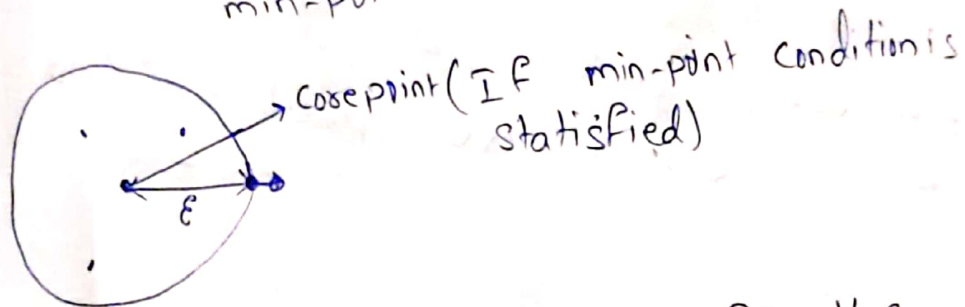 Corepoint (If min-point condition is
statisfied)
ε